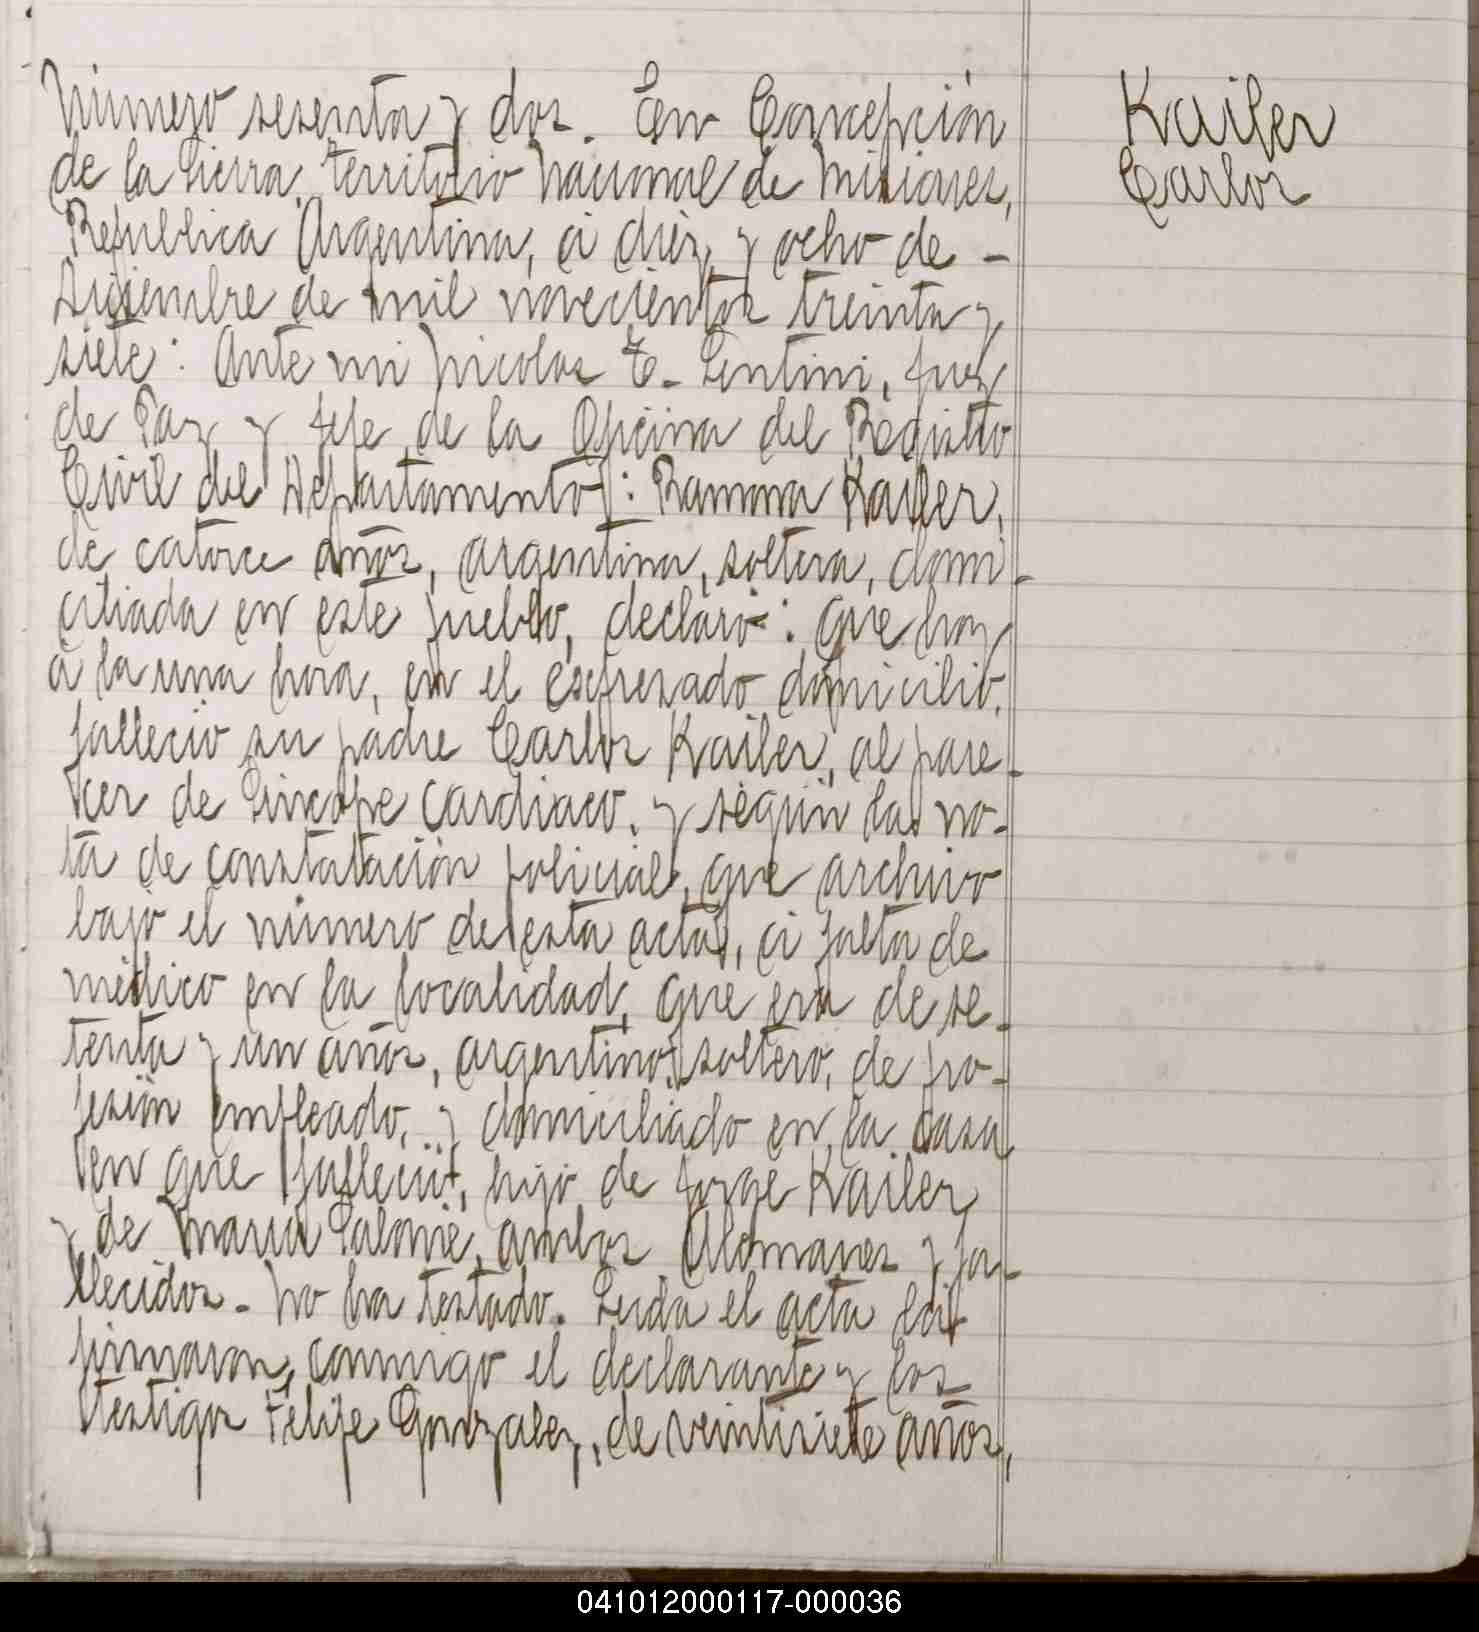 Número sesenta y dos. En Concepción
de la Sierra, Territorio Nacional de Misiones,
República Argentina, á diez y ocho de -
Diciembre de mil novecientos treinta y
siete: Ante mi Nicolas T. Sentini, Juez
de Paz y Jefe de la Oficina del Registro
Civil del Departamento: Ramona Kailer,
de catorce años, argentina, soltera, domi-
ciliada en este pueblo, declaró: Que hoy
á la una hora, en el espresado domicilio,
falleció su padre Carlos Kailer, al pare-
cer de Sincope cardiaco, y según la no-
ta de constatación policial, que archivo
bajo el número de esta acta, á falta de
médico en la localidad, que era de se-
tenta y un años, argentino, soltero, de pro-
fesión empleado, y domiciliado en la casa
en que falleció, hijo de Jorge Kailer
y de Maria Salomé, ambos Alemanes y fa-
llecidos. - No ha testado. Leida el acta la
firmaron, conmigo el declarante y los
testigos Felipe Gonzalez, de veintisiete años,
Kailer
Carlos
041012000117-000036